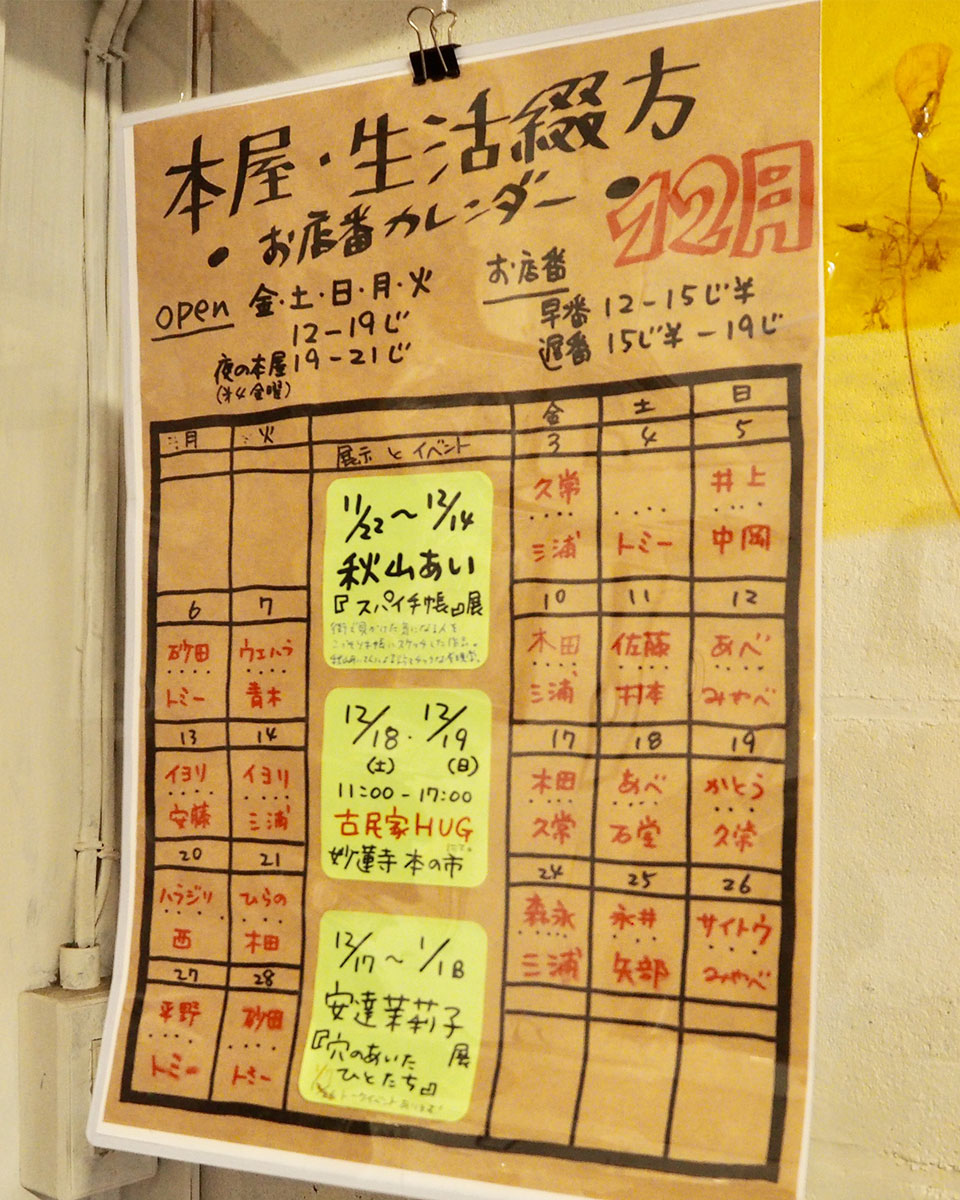 本屋・生活綴方
・お店番カレンダー・
12月
open 金・土・日・月・火
12-19じ
夜の本屋 19-21じ
(第4金曜)
お店番
早番 12-15じ半
遅番 15じ半-19じ
月 火 展示とイベント 金 土 日
3 4 5
久常 井上
三浦 トミー 中岡
6 7
砂田 ウエハラ
トミー 青木
10 11 12
木田 佐藤 あべ
三浦 村本 みやべ
13 14
イヨリ イヨリ
安藤 三浦
17 18 19
木田 あべ かとう
久常 石堂 久常
20 21
ハラジリ ひらの
西 木田
24 25 26
森永 永井 サイトウ
三浦 矢部 みやべ
27 28
平野 砂田
トミー トミー
11/22〜12/14
秋山あい
『スパイチ帳』展
12/18・12/19
(土) (日)
11:00-17:00
古民家HUG
にて。
妙蓮寺 本の市
12/17〜1/18
安達茉莉子
『穴のあいた
ひとたち』
展
トークイベントあります